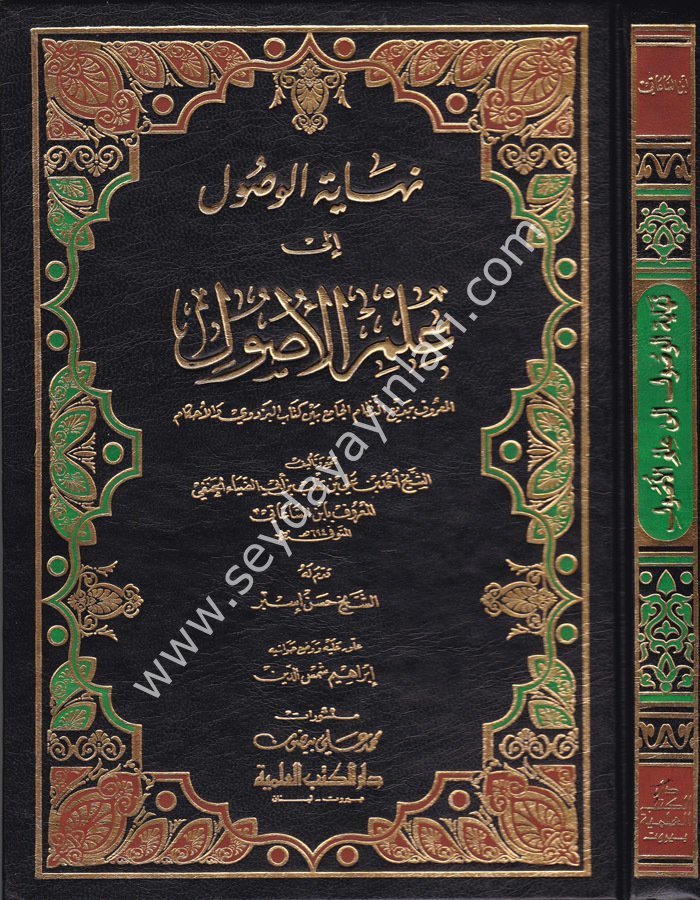 نهاية الوصول
إلى
علم الأصول
المعروف ببديع النظام الجامع بين كتاب البزدوي والأحكام
تأليف
الشيخ أحمد بن علي بن أبي الضياء الحنفي
المعروف بابن الساعاتي
المتوفى ٦٩٤هـ
قدم له
الشيخ حسن
علق عليه ووضع حواشيه
إبراهيم شمس الدين
منشورات
محمد علي بيضون
دار الكتب العلمية
بيروت - لبنان
ابن الساعاتي
نهاية الوصول إلى علم الأصول
دار
الكتب
العلمية
بيروت
www.seydayayinlari.com